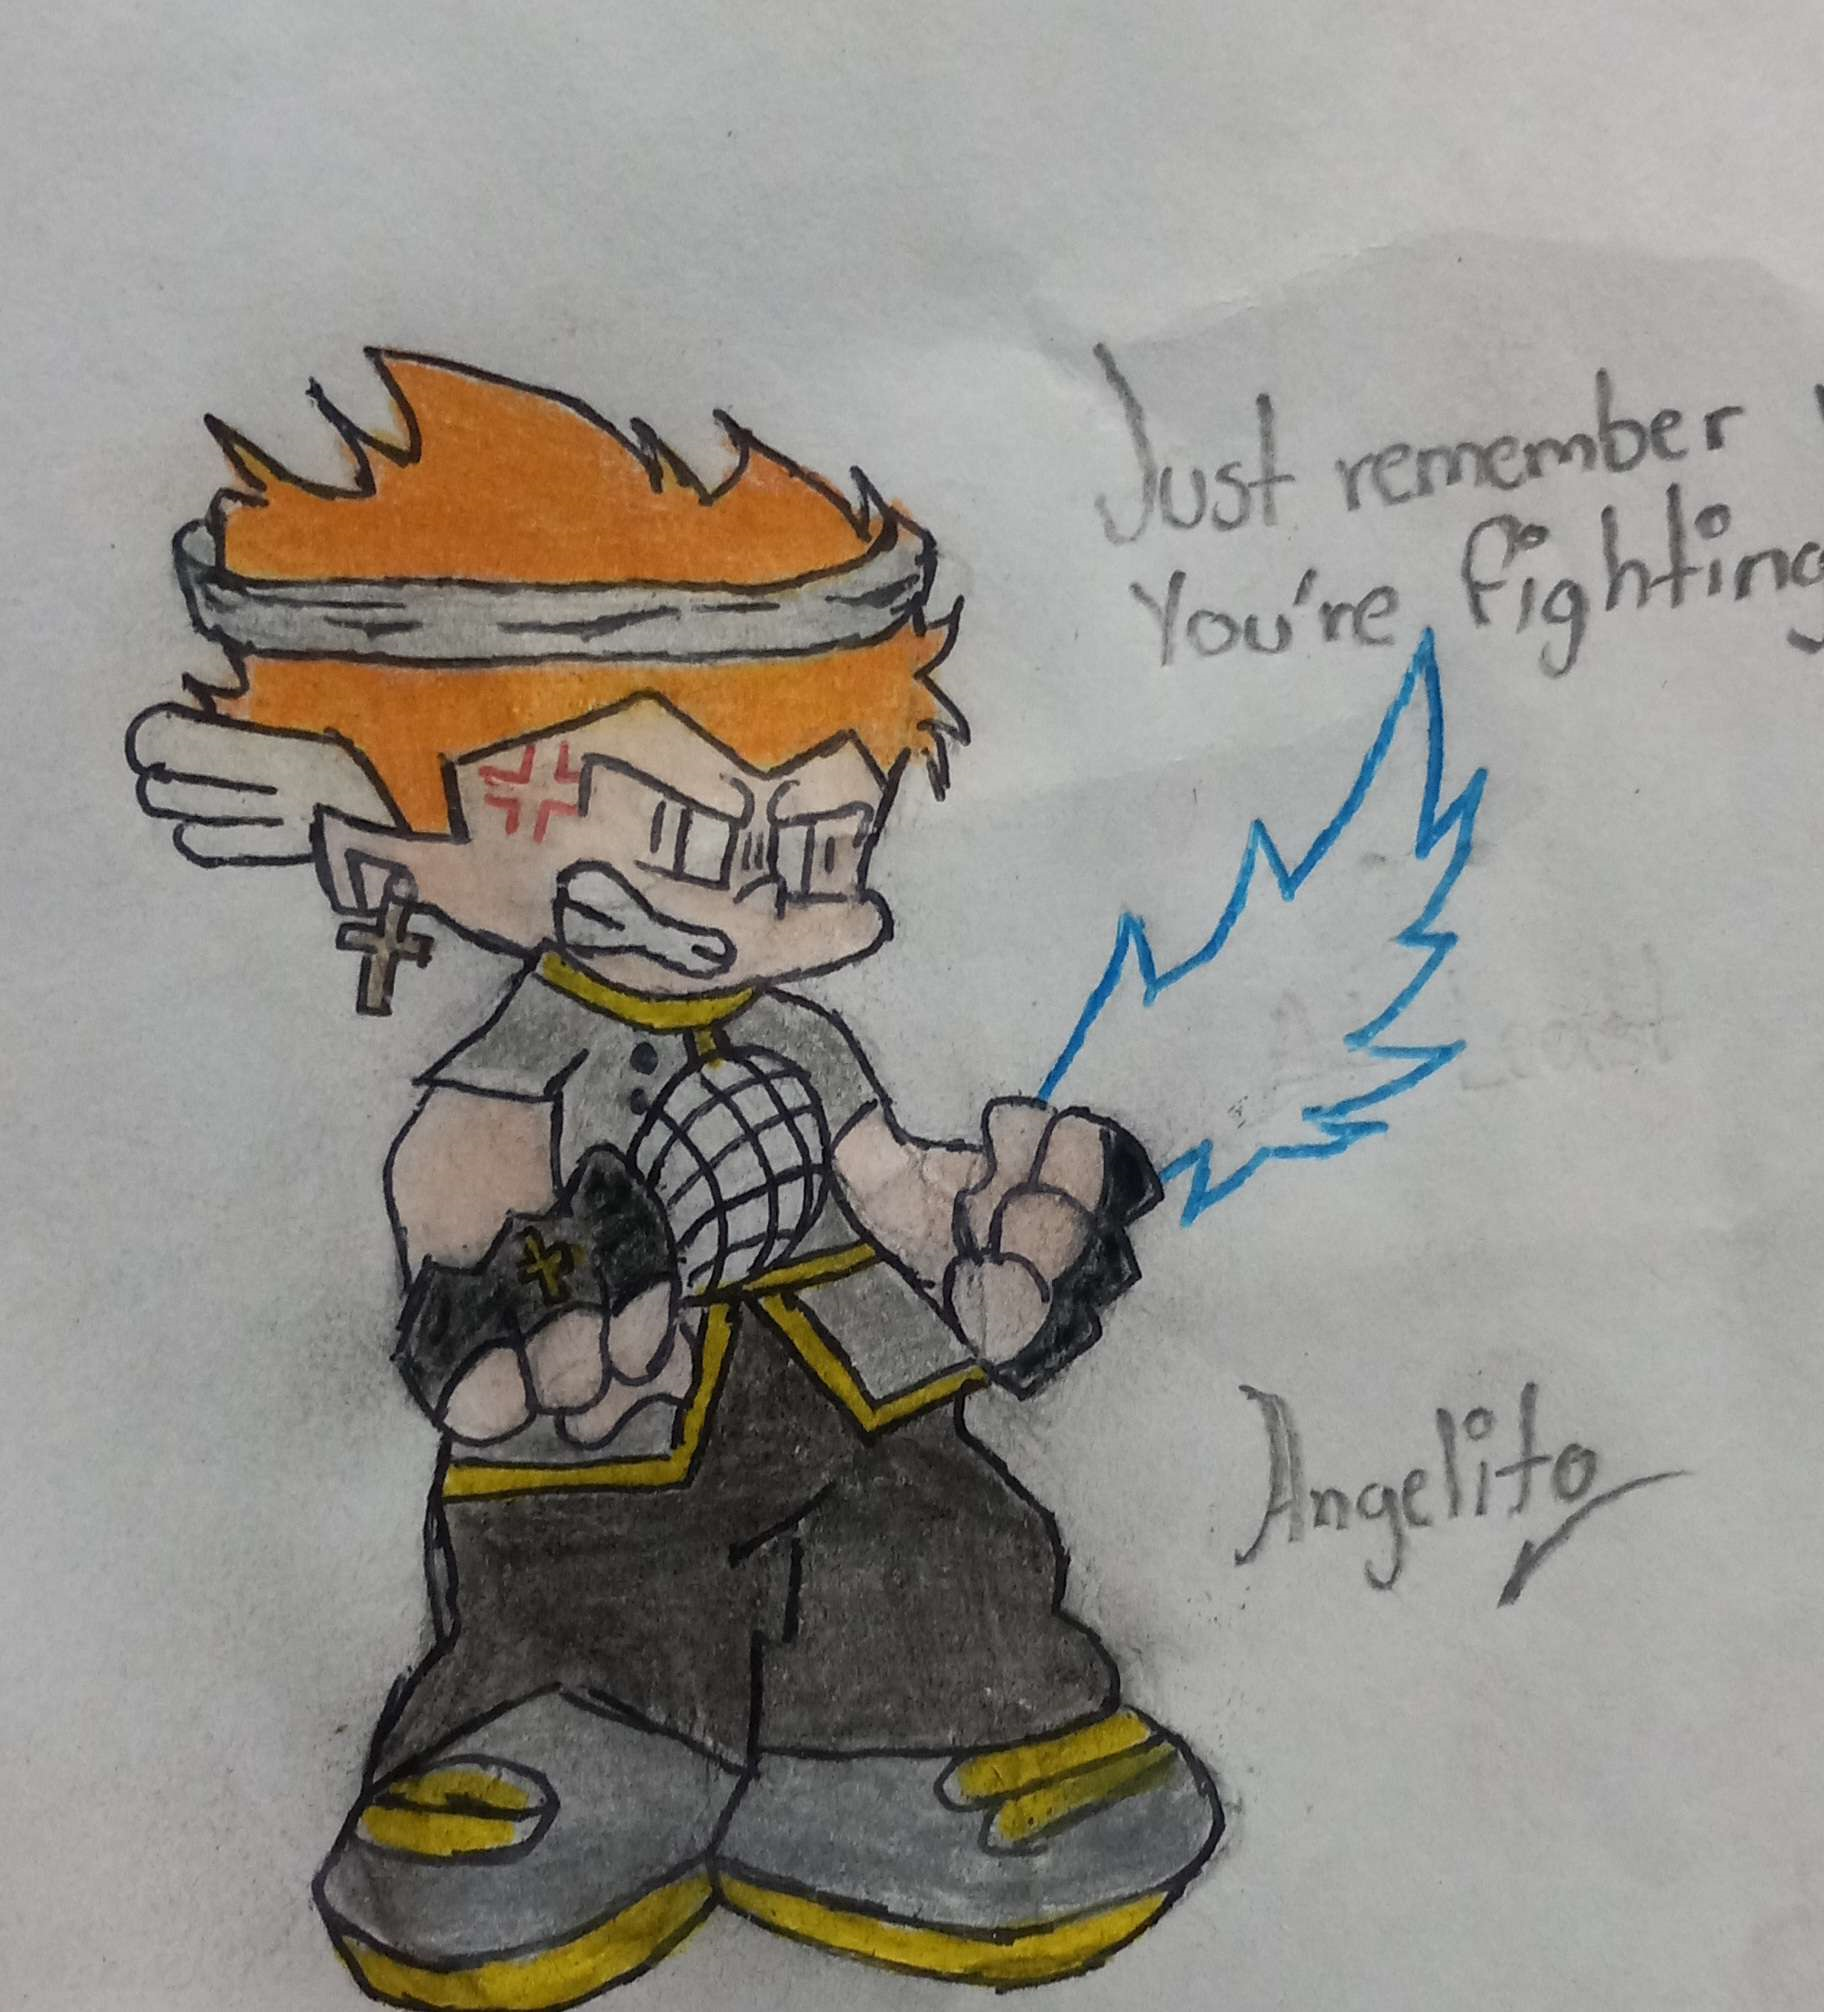 Just remember
You're fighting
Angelito